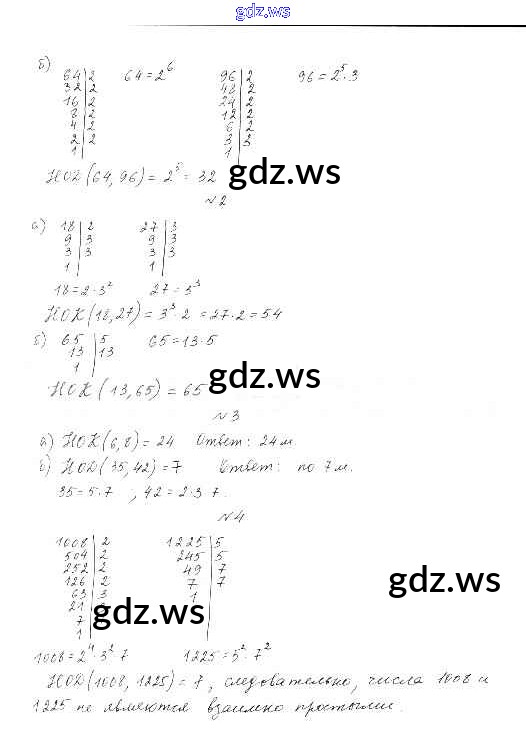 gdz.ws
б) 64|2 64=2⁶ 96|2 96=2⁵·3
32|2 48|2
16|2 24|2
8|2 12|2
4|2 6|2
2|2 3|3
1| 1|
НОД(64,96)=2⁵=32
gdz.ws
№2
а) 18|2 27|3
9|3 9|3
3|3 3|3
1| 1|
18=2·3² 27=3³
НОК(18,27)=3³·2=27·2=54
б) 65|5 65=13·5
13|13
1|
НОК(13,65)=65
gdz.ws
№3
а) НОК(6,8)=24 Ответ: 24 м.
б) НОД(35,42)=7 Ответ: по 7 м.
35=5·7, 42=2·3·7.
№4
1008|2 1225|5
504|2 245|5
252|2 49|7
126|2 7|7
63|3 1|
21|
7|
1|
gdz.ws
gdz.ws
1008=2⁴·3²·7 1225=5²·7²
НОД(1008,1225)=7, следовательно, числа 1008 и
1225 не являются взаимно простыми.